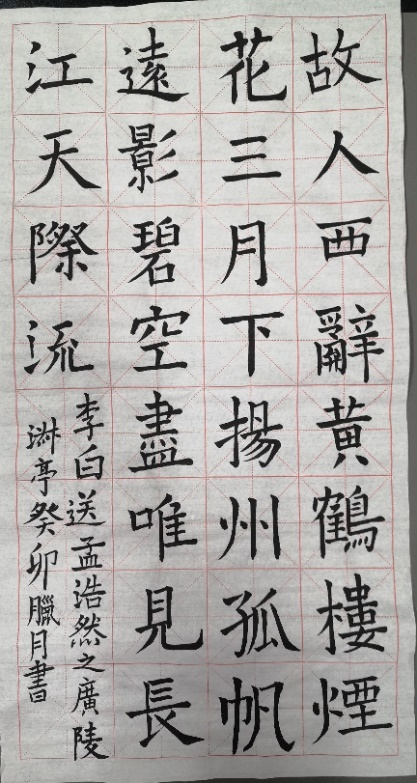 故人西辭黃鶴樓煙
花三月下揚州孤帆
遠影碧空盡唯見長
江天際流
李白送孟浩然之廣陵
淋亭癸卯臘月書